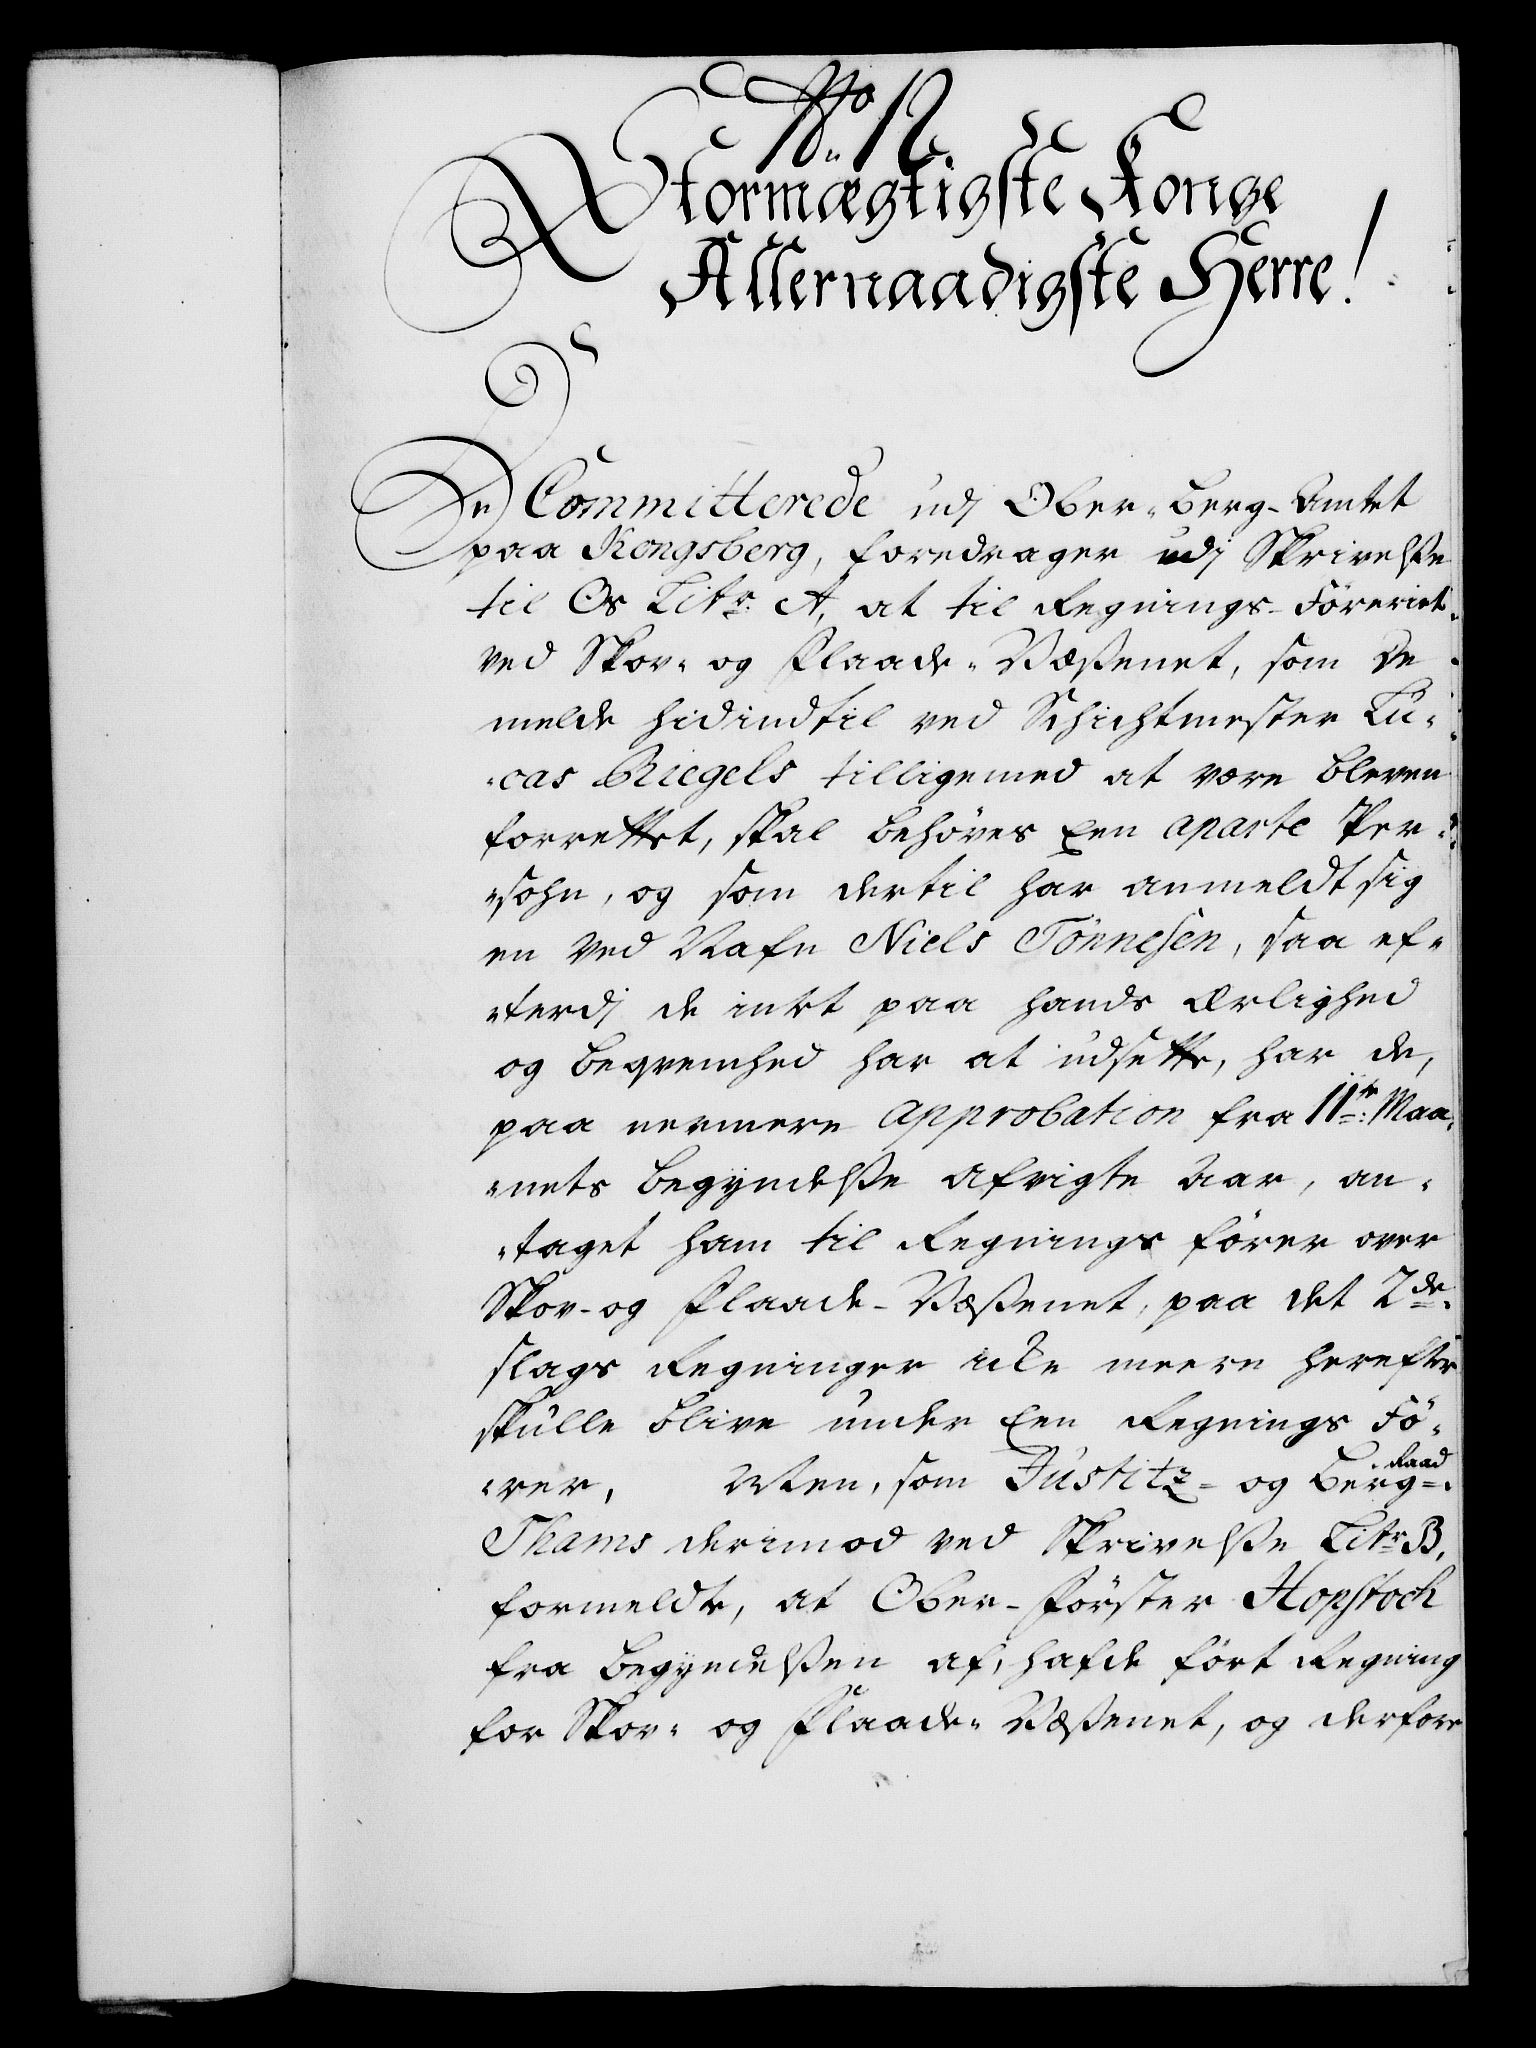 No 12.
Stormægtigste Konge
Allernaadigste Herre!
De Committerede udj Ober-Berg-Amtet
paa Kongsberg, foredrager udj Skrivelße
til Os Litr. A, at til Regnings-Föreriet
ved Skov- og Flaade-Væßenet, som De
melde hidindtil ved Schichtmester Lu-
-cas Riegels tilligemed at være bleven
forrettet, skal behöves Een aparte Per-
-sohn, og som dertil har anmeldt sig
en ved Nafn Niels Tönnesen, saa ef-
-terdj de intet paa hands Ærlighed
og Beqvemhed har at udsette, har de,
paa nermere Approbation fra 11te Maa-
-nets Begyndelße afvigte Aar, an-
-taget ham til Regnings förer over
Skov- og Flaade-Væßenet, paa det 2de
slags Regninger icke meere herefter
skulle blive under Een Regnings Fö-
-rer, Men, som Justitz- og Berg-Raad
Thams derimod ved Skrivelße Litr B,
formeldte, at Ober-Förster Hopstock
fra Begyndelßen af, hafde fört Regning
for Skov- og Flaade-Væßenet, og derfore